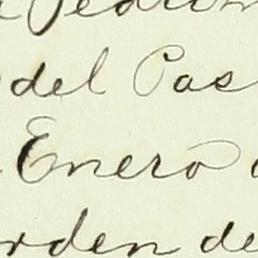 del Pas
Enero
orden de